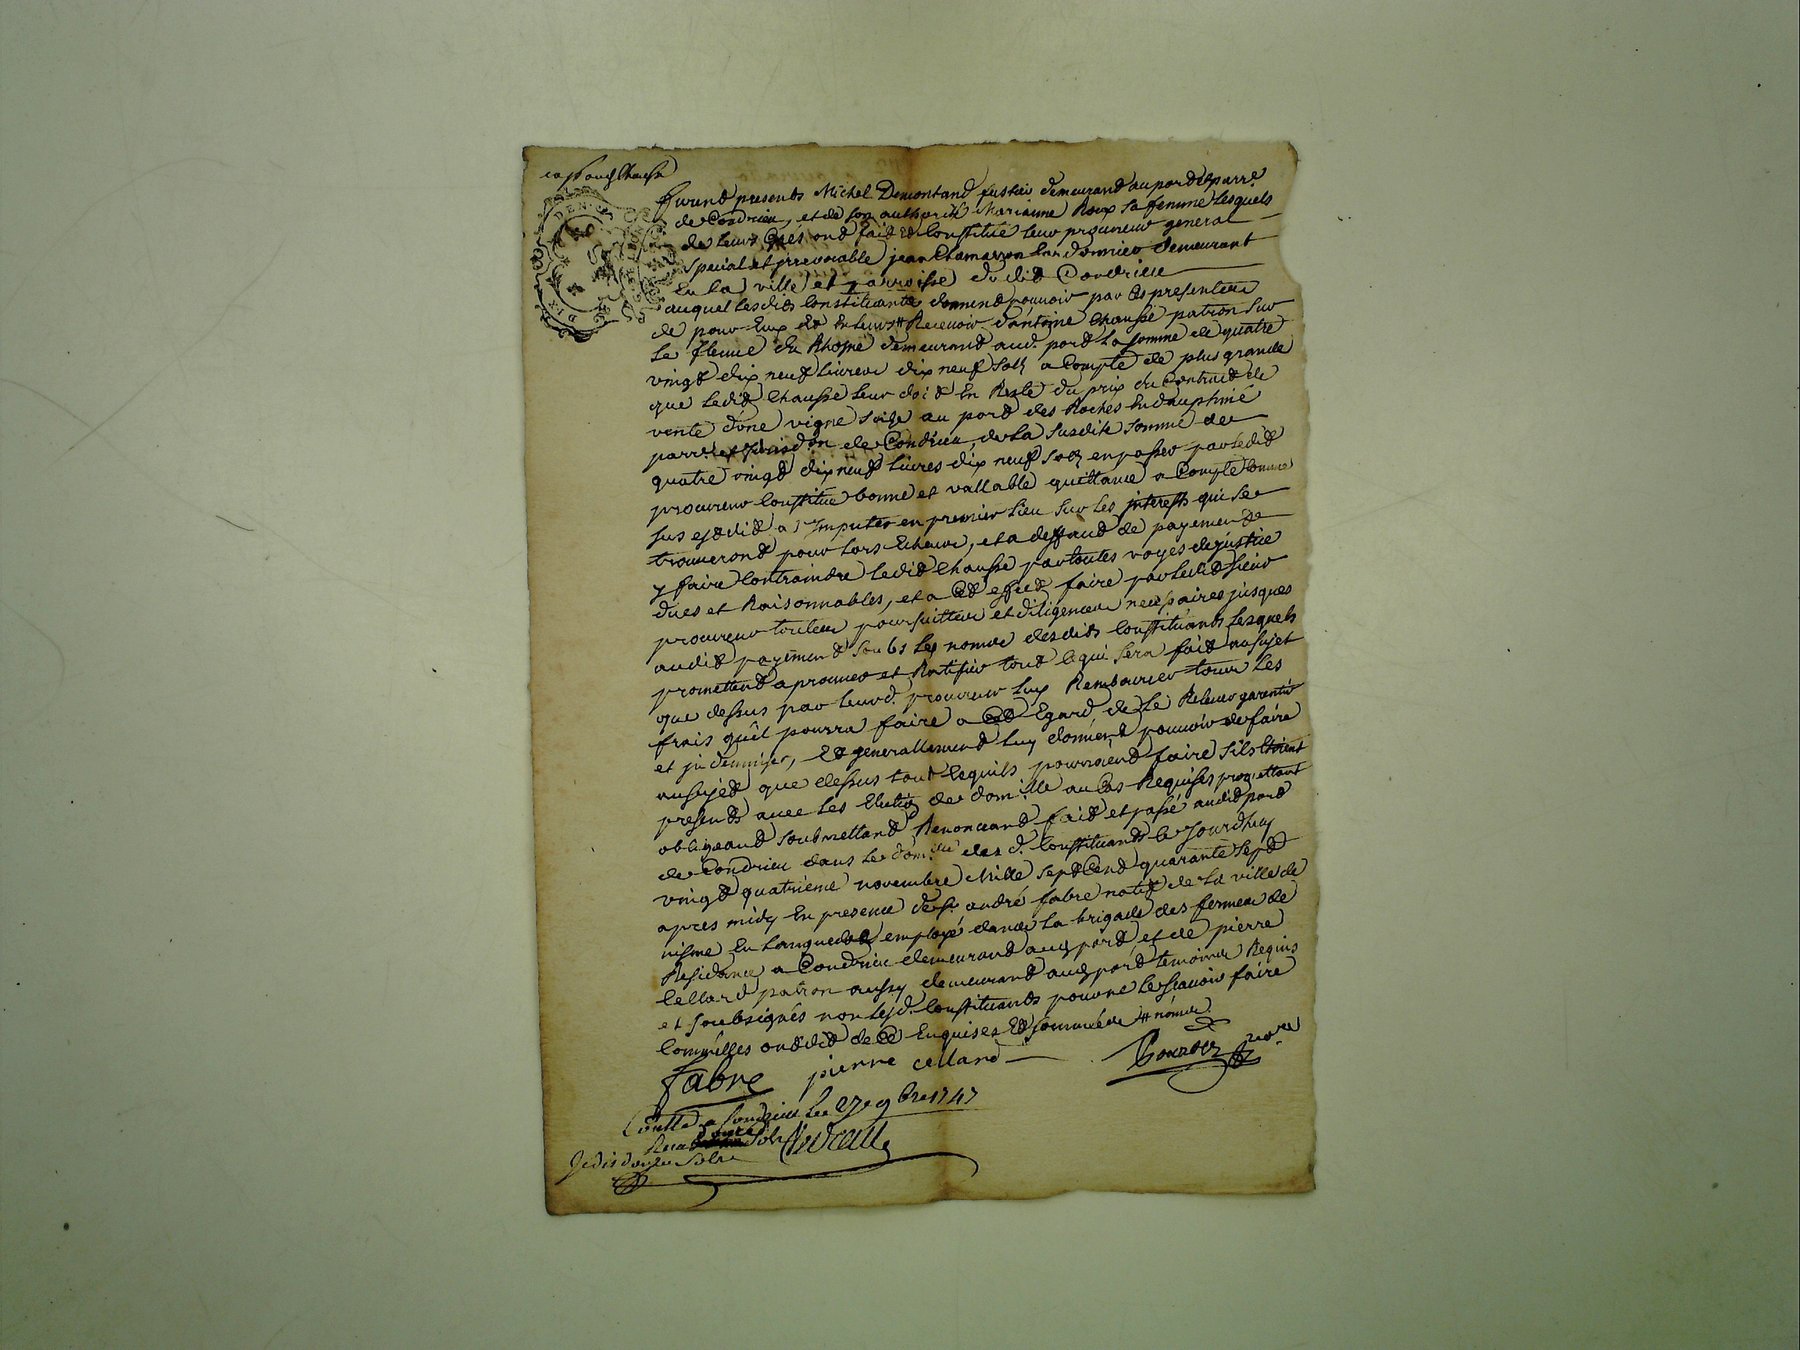 furent presents Michel Demontand fustier demeurand au port et parr.e
de Condrieu, et de son authorité Marianne Roux sa femme Lesquels
de leurs grés ont fait et Constitué leur procureur general
special et jrrevocable jean Chamasson demeurant
En la ville et parroisse du dit Condrieu
auquel lesdits Constituants donnent pouvoir par Ces presentes
de pour Eux et En leurs # Recevoir d'antoine Chausse patron sur
Le fleuve du Rhosne demeurant aud. port La somme de quatre
vingt dix neuf livres dix neuf sols a Compte de plus grande
que ledit Chausse leur doit En Reste du prix du Contract de
vente d'une vigne size au port des Roches En dauphiné
parr.e et jurisd.on de Condrieu, de La susdite somme de
quatre vingt dix neuf livres dix neuf sols en passer par ledit
procureur Constitué bonne et vallable quittance a Compte Comme
sus est dit a jmputer en premier lieu sur les jnterests qui se
trouveront pour lors Echeus, et a deffaut de payement
y faire Contraindre ledit Chausse par toutes voyes de justice
dues et Raisonnables, et a Cet effect faire par ledit sieur
procureur toutes poursuittes et diligences necessaires jusques
audit payement soubs les noms desdits Constituants Lesquels
promettent aprouver et Ratifier tout ce qui sera fait au sujet
que dessus par leurd. procureur luy Rembourcer tous les
frais qu'il pourra faire a Cet Egard de Le Relever garentir
et jndemniser, Et generallement luy donnent pouvoir de faire
au sujet que dessus tout ce quils pourroient faire sils Etoient
presents avec les Election de dom.ille au Cas Requises promettant
obligeant soubmettant Renonceant fait et passé audit port
de Condrieu dans le dom.ille des d. Constituants le jourdhuy
vingt quatrieme novembre Mille sept Cent quarante sept
apres midy En presence de s.r andré fabre natif de La ville de
nisme En Languedoc employé dans La brigade des fermes de
Residance a Condrieu demeurant aud port, et de pierre
Cellard patron aussy demeurant aud port temoins Requis
et soubsignés non lesd. Constituants pour ne le scavoir faire
Comm'elles ont dit de Ce Enquises Et sommées # noms
fabre pierre cellard
Con.lle a Condrieu Le 27e 9bre 1747
Reçu sols
Je dis douze sols